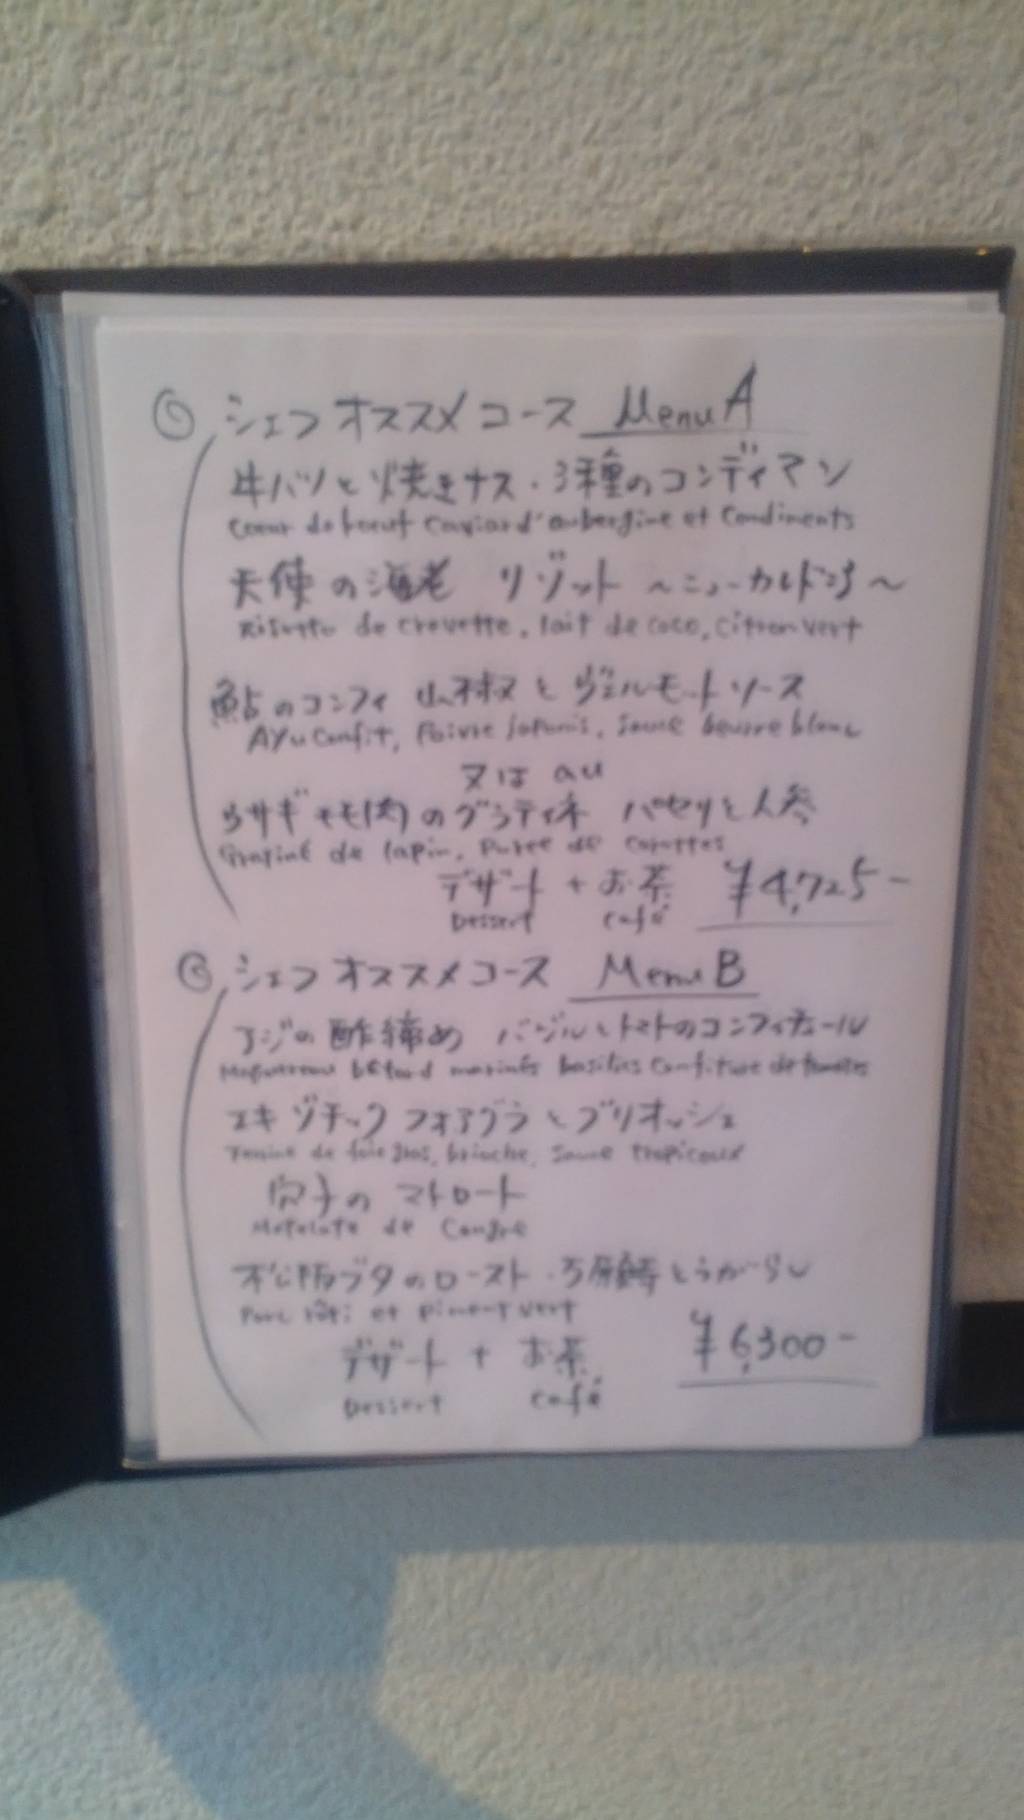 ◎ シェフ オススメ コース Menu A
牛ハツと焼きナス・3種のコンディマン
Coeur de boeuf Caviar d'aubergine et Condiments
天使の海老 リゾット 〜ニューカレドニア〜
Risotto de crevette, lait de coco, citron vert
鮎のコンフィ 山椒とヴェルモットソース
Ayu Confit, Poivre japonais, Sauce beurre blanc
又は au
ウサギモモ肉のグラティネ パセリと人参
Gratiné de lapin, Purée de carottes
デザート + お茶 ¥4,725-
Dessert café
◎ シェフ オススメコース Menu B
アジの酢締め バジルとトマトのコンフィチュール
marinés basilics Confiture de tomates
エキゾチックフォアグラとブリオッシュ
Terrine de foie gras, brioche, Sauce tropicaux
穴子の マトロート
Matelote de Congre
松阪ブタのロースト・万願寺とうがらし
Porc rôti et piment vert
デザート + お茶 ¥6,300-
Dessert café